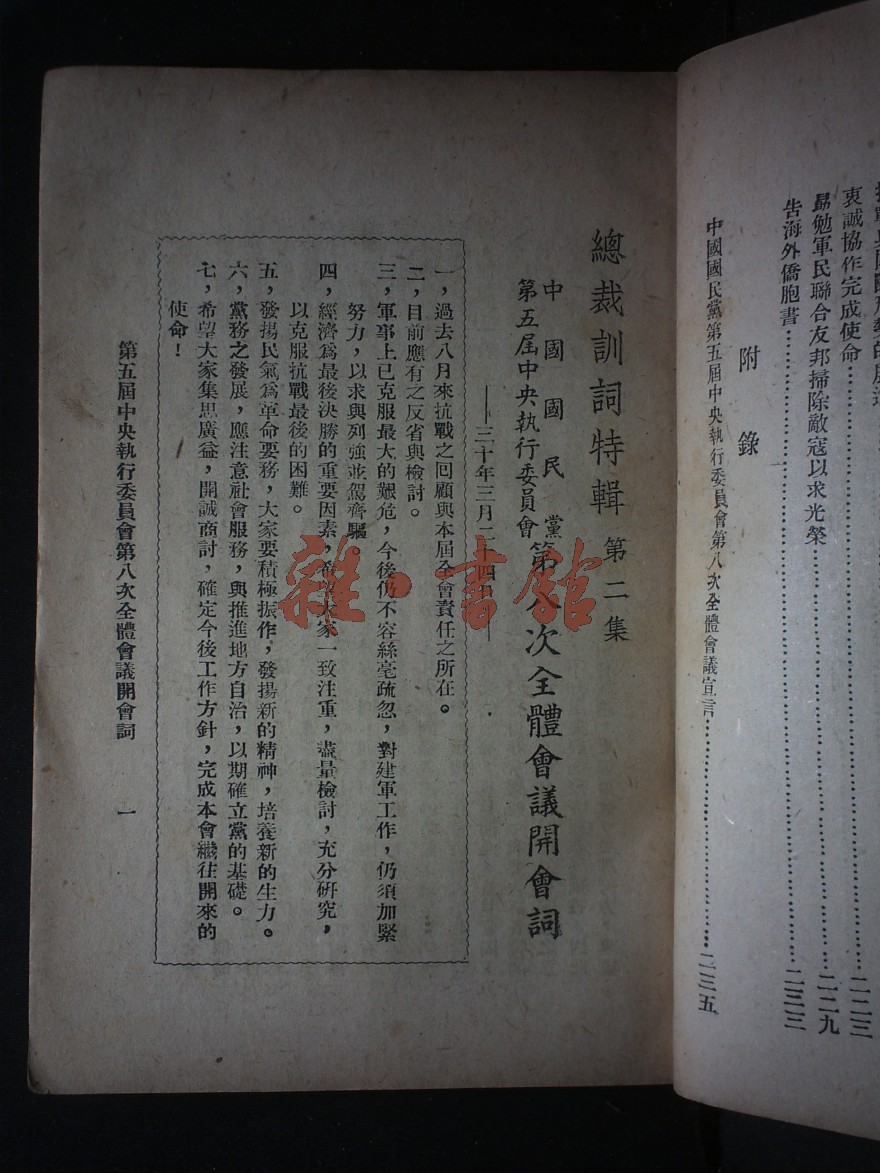 告海外僑胞書……二三三
勗勉軍民聯合友邦掃除敵寇以求光榮……二二九
衷誠協作完成使命……二二三
附錄
中國國民黨第五屆中央執行委員會第八次全體會議宣言……二三五
總裁訓詞特輯 第二集
中國國民黨
第五屆中央執行委員會
第八次全體會議開會詞
——三十年三月二十四日——
一,過去八月來抗戰之回顧與本屆全會責任之所在。
二,目前應有之反省與檢討。
三,軍事上已克服最大的艱危,今後仍不容絲毫疏忽,對建軍工作,仍須加緊
努力,以求與列強並駕齊驅。
四,經濟為最後決勝的重要因素,希望大家一致注重,盡量檢討,充分研究,
以克服抗戰最後的困難。
五,發揚民氣為革命要務,大家要積極振作,發揚新的精神,培養新的生力。
六,黨務之發展,應注意社會服務,與推進地方自治,以期確立黨的基礎。
七,希望大家集思廣益,開誠商討,確定今後工作方針,完成本會繼往開來的
使命!
第五屆中央執行委員會第八次全體會議開會詞 一
雜·書館